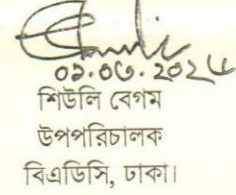 ০১.০৬.২০২৫
শিউলি বেগম
উপপরিচালক
বিএডিসি, ঢাকা।